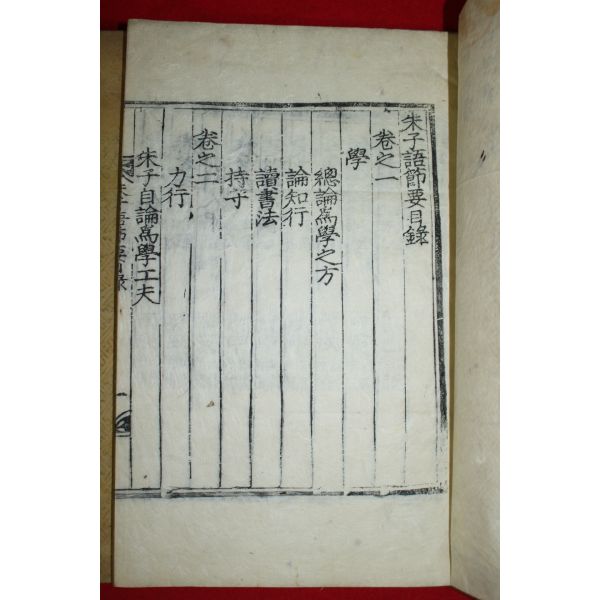 朱子語節要目錄
卷之一
學
總論爲學之方
論知行
讀書法
持守
卷之二
力行
朱子自論爲學工夫